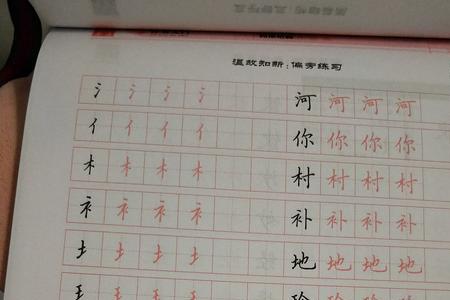 温故知新:偏旁练习
氵 氵 氵 氵 河 河 河 河
亻 亻 亻 亻 你 你 你 你
木 木 木 木 村 村 村 村
衤 衤 衤 衤 补 补 补 补
土 土 土 土 地 地 地 地